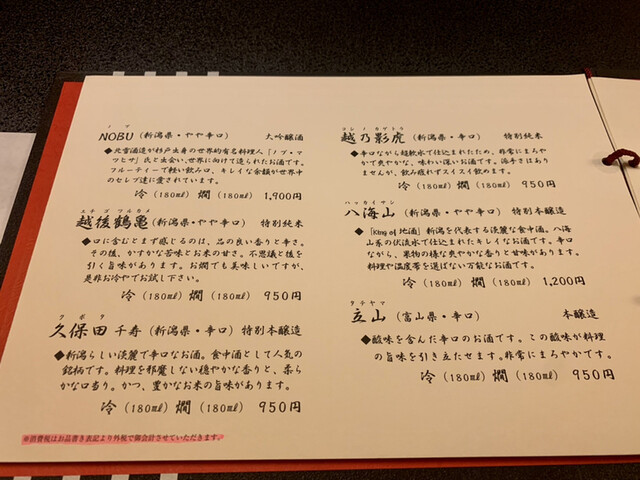 ノブ
NOBU (新潟県・やや辛口) 大吟醸酒
◆北雪酒造が杉戸出身の世界的有名料理人「ノブ・マ
ツヒサ」氏と出会い、世界に向けて造られたお酒です。
フルーティーで軽い飲み口、キレイな余韻が世界中
のセレブ達に愛されています。
冷 (180㎖) 燗 (180㎖) 1,900円
エチゴツルカメ
越後鶴亀 (新潟県・やや辛口) 特別純米
◆口に含むとまず感じるのは、品の良い香りと辛さ。
その後、かすかな苦味とお米の甘さ。不思議と後を
引く旨味があります。お燗でも美味しいですが、
是非お冷やでお試し下さい。
冷 (180㎖) 燗 (180㎖) 950円
クボタ
久保田 千寿 (新潟県・辛口) 特別本醸造
◆新潟らしい淡麗で辛口なお酒。食中酒として人気の
銘柄です。料理を邪魔しない穏やかな香りと、柔ら
かな口当り。かつ、豊かなお米の旨味があります。
冷 (180㎖) 燗 (180㎖) 950円
※消費税はお品書き表記より外税で御会計させていただきます。
コシノカゲトラ
越乃影虎 (新潟県・辛口) 特別純米
◆辛口ながら超軟水で仕込まれたため、非常にまろや
かで爽やかな、味わい深いお酒です。派手さはあり
ませんが、飲み疲れずスイスイ飲めます。
冷 (180㎖) 燗 (180㎖) 950円
ハッカイサン
八海山 (新潟県・やや辛口) 特別本醸造
◆「King of 地酒」新潟を代表する淡麗な食中酒。八海
山系の伏流水で仕込まれたキレイなお酒です。辛口
ながら、果物の様な爽やかな香りと甘味があります。
料理や温度帯を選ばない万能なお酒です。
冷 (180㎖) 燗 (180㎖) 1,200円
タテヤマ
立山 (富山県・辛口) 本醸造
◆酸味を含んだ辛口のお酒です。この酸味が料理
の旨味を引き立たせます。非常にまろやかです。
冷 (180㎖) 燗 (180㎖) 950円